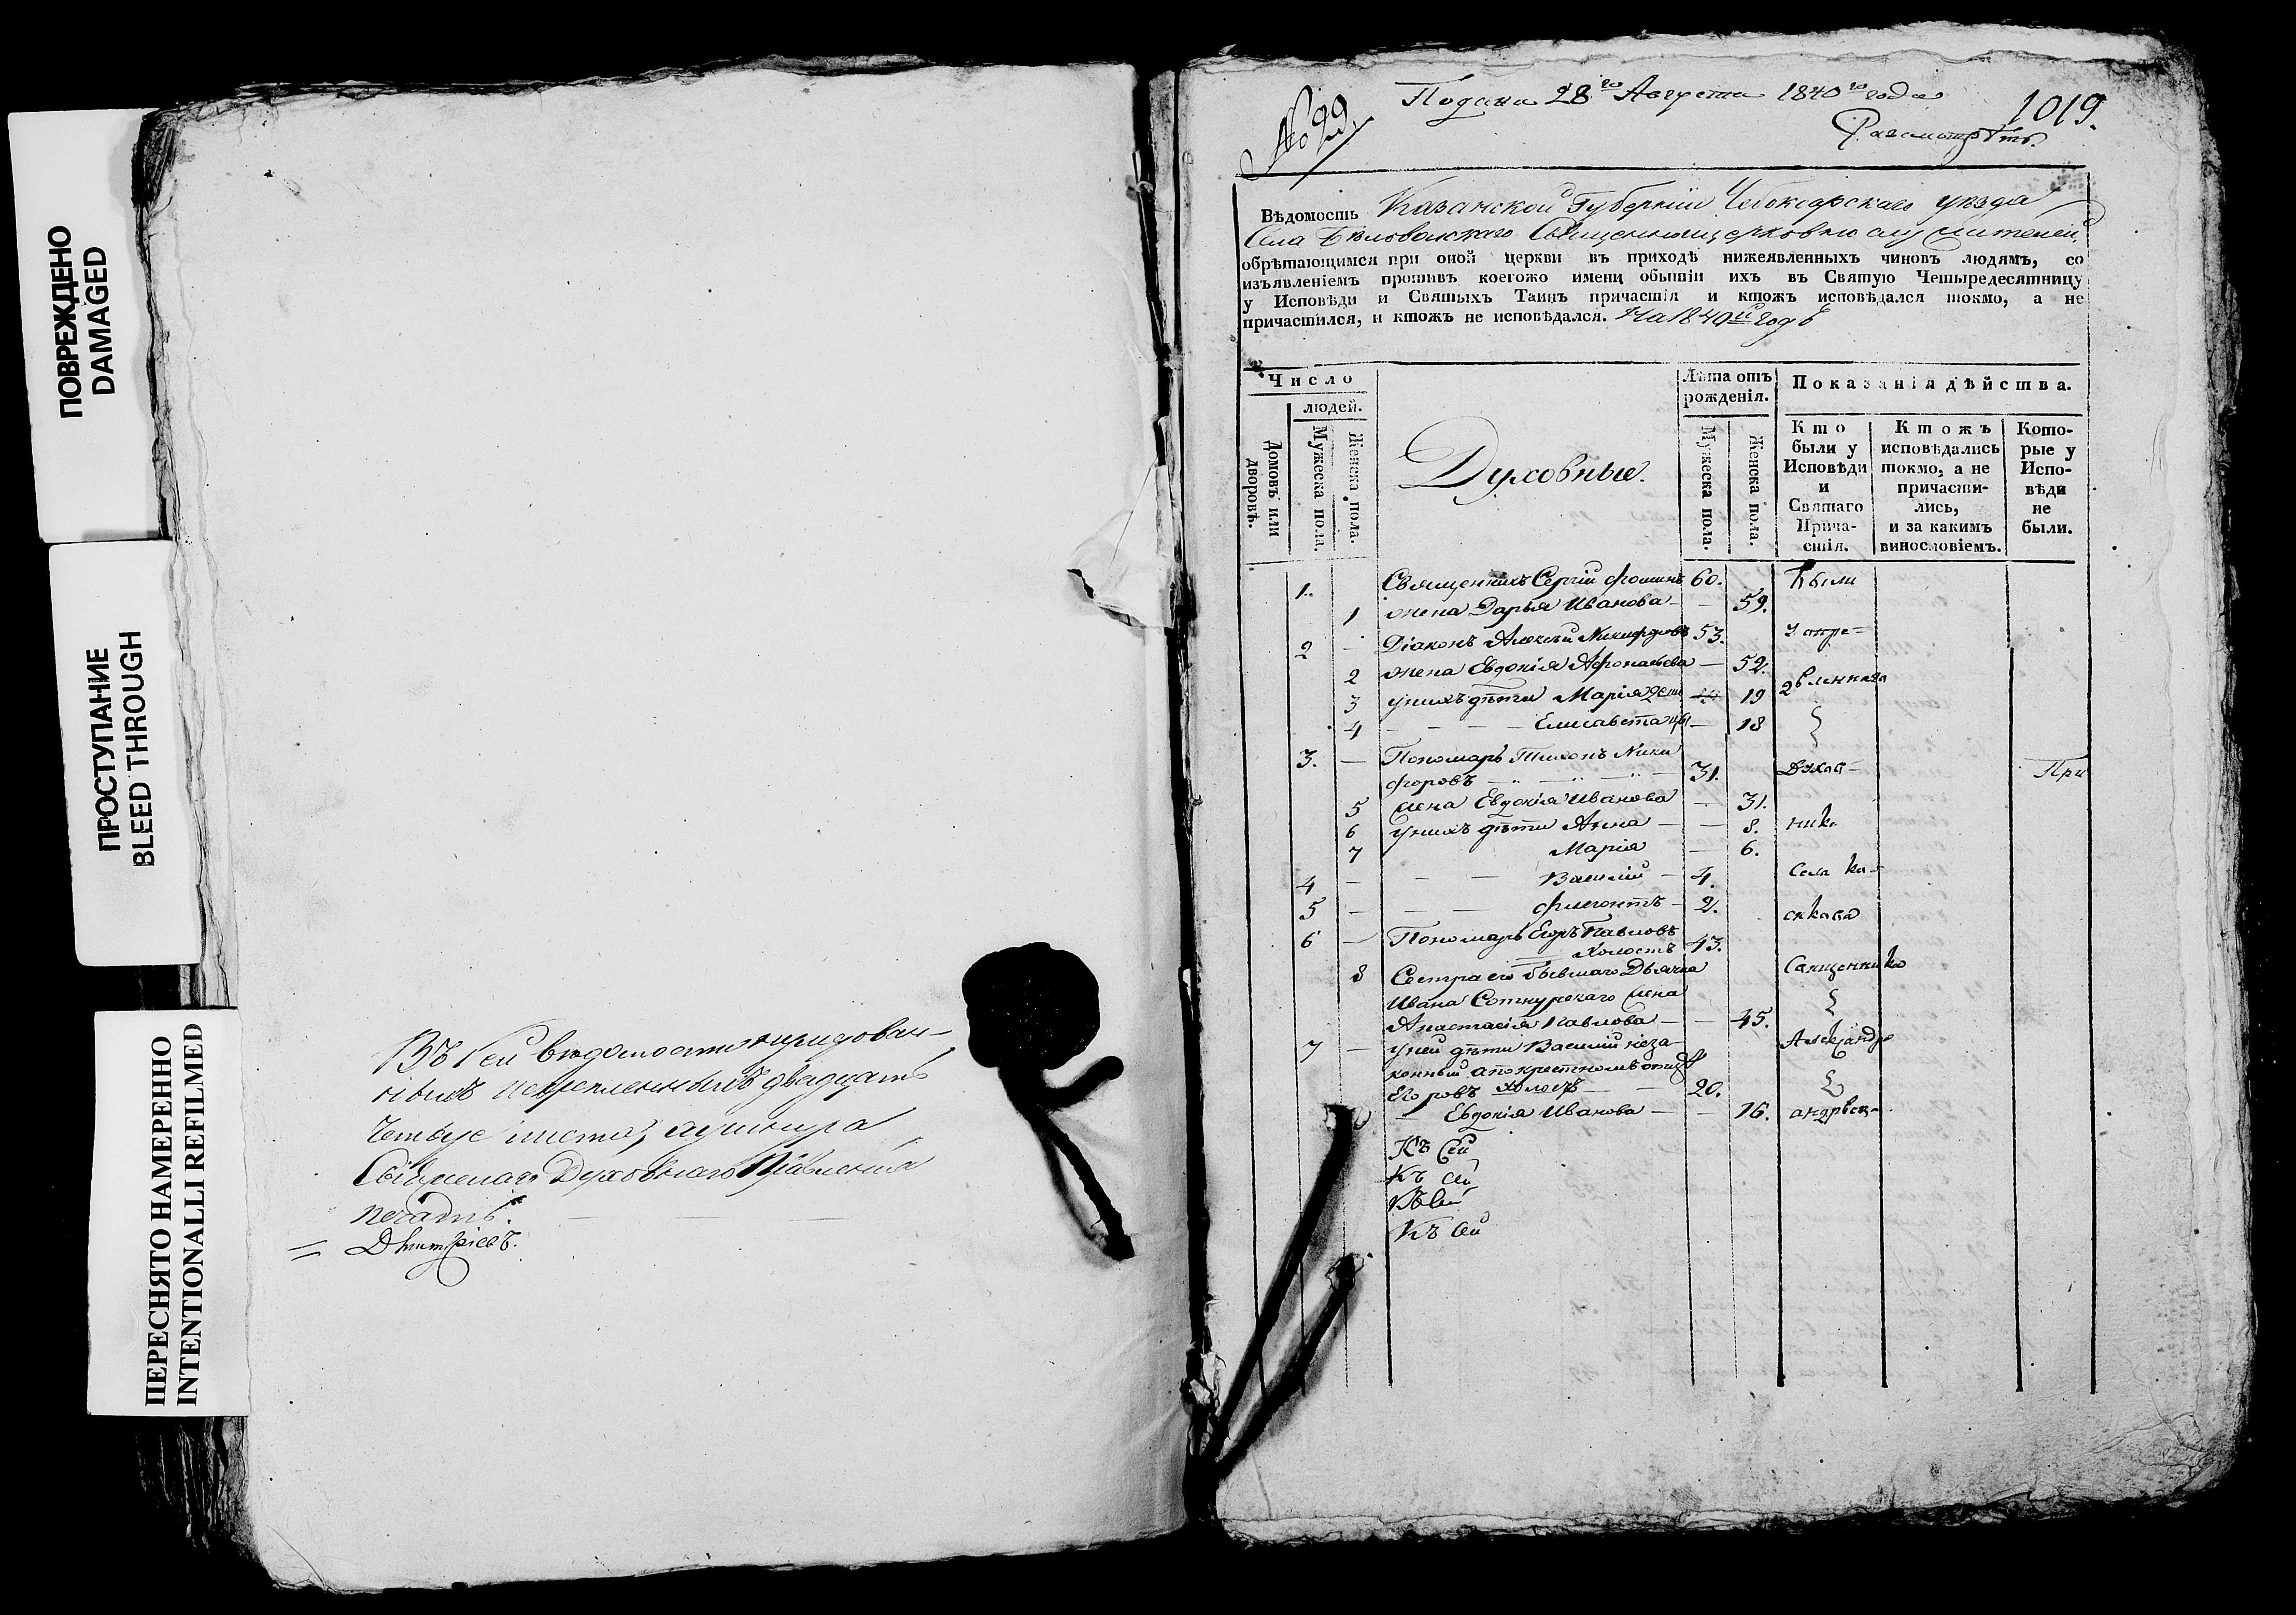 ПОВРЕЖДЕНО
DAMAGED
ПРОСТУПАНИЕ
BLEED THROUGH
ПЕРЕСНЯТО НАМЕРЕННО
INTENTIONALLI REFILMED
Въ сей ведомости
двадцать
четыре листа,
Духовнаго Правленія
печать.
Дмитріевъ.
№ 99
Подана 28го Августа 1840го года
1019.
Разсмотрѣть.
Вѣдомость Казанской Губерніи Чебоксарскаго уезда
Села Бѣловолжскаго Священноцерковнослужителей,
обрѣтающимся при оной церкви въ приходѣ нижеявленныхъ чиновъ людямъ, со
изъявленіемъ противъ коегожо имени обытіи ихъ въ Святую Четыредесятницу
у Исповѣди и Святыхъ Таинъ причастія и ктожъ исповѣдался токмо, а не
причастился, и ктожъ не исповѣдался. На 1840й годъ
Число
людей.
Домовъ или дворовъ.
Мужеска пола.
Женска пола.
Духовные.
Лѣта отъ
рожденія.
Мужеска пола.
Женска пола.
Показанія дѣйства.
Кто
были у
Исповѣди
и
Святаго
Прича-
стія.
Ктожъ
исповѣдались
токмо, а не
причасти-
лись,
и за какимъ
винословіемъ.
Кото-
рые у
Испо-
вѣди
не
были.
1. Священникъ Сергій Фоминъ 60. Были
1 жена Дарья Иванова — 59.
2 — Діаконъ Алексѣй Никифоровъ 53.
2 жена Евдокія Афонасьева — 52.
3 у нихъ дѣти Марія 19
4 — — — Елисавета — 18
3. — Пономарь Тихонъ Ники
форовъ 31. При
5 жена Евдокія Иванова — 31.
6 у нихъ дѣти Анна — — 8. ника
7 Марія — 6.
4 — — — Василій — 4. Села Ка-
5 — — — Флегонтъ — 2.
6 — Пономарь Егоръ Павловъ
холостъ 43.
8 Сестра его бывшаго Дьячка Священника
Ивана Сотнурскаго жена
Анастасія Павлова — — 45.
7 — у ней дѣти Василій неза- Александр
конный а по крестномъ отцу
Егоровъ холостъ — — 20.
— Евдокія Иванова — — 16.
Къ сей
Къ сей
Къ сей
Къ сей